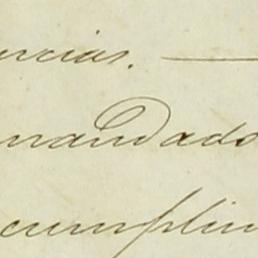 ncias. —
mandado
cumplim